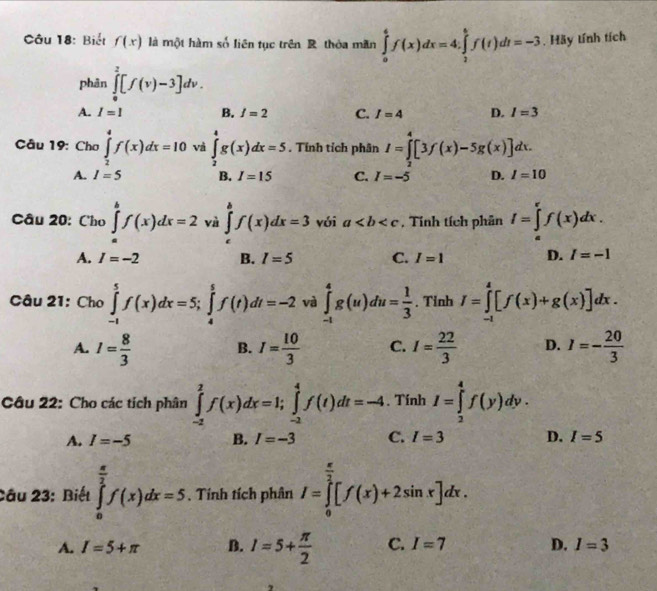 Câu 18: Biết f(x) là một hàm số liên tục trên R thỏa mãn ∫₀⁶ f(x)dx = 4; ∫₂⁶ f(t)dt = -3. Hãy tính tích
phân ∫₀² [f(v)-3]dv.
A. I = 1 B. I = 2 C. I = 4 D. I = 3
Câu 19: Cho ∫₂⁴ f(x)dx = 10 và ∫₂⁴ g(x)dx = 5. Tính tích phân I = ∫₂⁴ [3f(x)-5g(x)]dx.
A. I = 5 B. I = 15 C. I = -5 D. I = 10
Câu 20: Cho ∫ₐᵇ f(x)dx = 2 và ∫_c^b f(x)dx = 3 với a < b < c. Tính tích phân I = ∫_a^c f(x)dx.
A. I = -2 B. I = 5 C. I = 1 D. I = -1
Câu 21: Cho ∫₋₁⁵ f(x)dx = 5; ∫₄⁵ f(t)dt = -2 và ∫₋₁⁴ g(u)du = 1/3. Tính I = ∫₋₁⁴ [f(x)+g(x)]dx.
A. I = 8/3 B. I = 10/3 C. I = 22/3 D. I = -20/3
Câu 22: Cho các tích phân ∫₋₂² f(x)dx = 1; ∫₋₂⁴ f(t)dt = -4. Tính I = ∫₂⁴ f(y)dy.
A. I = -5 B. I = -3 C. I = 3 D. I = 5
Câu 23: Biết ∫_0^(π/2) f(x)dx = 5. Tính tích phân I = ∫_0^(π/2) [f(x)+2sin x]dx.
A. I = 5+π B. I = 5+π/2 C. I = 7 D. I = 3